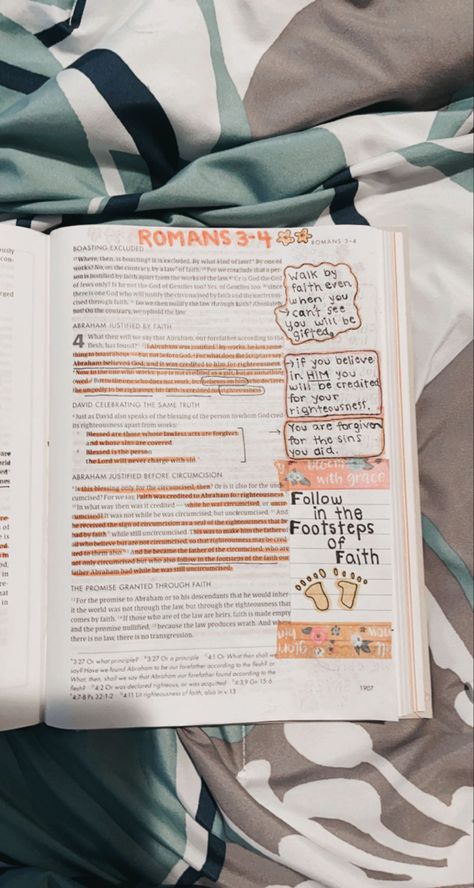 ROMANS 3-4
ROMANS 3-4
BOASTING EXCLUDED
27 Where, then, is boasting? It is excluded. By what kind of law? By one of
works? No, on the contrary, by a law of faith. 28 For we conclude that a per-
son is justified by faith apart from the works of the law. 29 Or is God the God
of Jews only? Is he not the God of Gentiles too? Yes, of Gentiles too, 30 since
there is one God who will justify the circumcised by faith and the uncircum-
cised through faith. 31 Do we then nullify the law through faith? Absolutely
not! On the contrary, we uphold the law.
ABRAHAM JUSTIFIED BY FAITH
4 What then will we say that Abraham, our forefather according to the
flesh, has found? 2 If Abraham was justified by works, he has some-
thing to boast about — but not before God. 3 For what does the Scripture say?
Abraham believed God, and it was credited to him for righteousness.
4 Now to the one who works, pay is not credited as a gift, but as something
owed. 5 But to the one who does not work, but believes on him who declares
the ungodly to be righteous, his faith is credited for righteousness.
DAVID CELEBRATING THE SAME TRUTH
6 Just as David also speaks of the blessing of the person to whom God cred
its righteousness apart from works:
7 Blessed are those whose lawless acts are forgiven
and whose sins are covered.
8 Blessed is the person
the Lord will never charge with sin.
ABRAHAM JUSTIFIED BEFORE CIRCUMCISION
9 Is this blessing only for the circumcised, then? Or is it also for the un
cumcised? For we say, Faith was credited to Abraham for righteousness
10 In what way then was it credited — while he was circumcised, or unci
cumcised? It was not while he was circumcised, but uncircumcised. 11 And
he received the sign of circumcision as a seal of the righteousness that he
had by faith while still uncircumcised. This was to make him the father
all who believe but are not circumcised, so that righteousness may be cred
ited to them also. 12 And he became the father of the circumcised, who are
not only circumcised but who also follow in the footsteps of the faith our
father Abraham had while he was still uncircumcised.
THE PROMISE GRANTED THROUGH FAITH
13 For the promise to Abraham or to his descendants that he would inher
it the world was not through the law, but through the righteousness that
comes by faith. 14 If those who are of the law are heirs, faith is made empty
and the promise nullified, 15 because the law produces wrath. And where
there is no law, there is no transgression.
3:27 Or what principle? 3:27 Or a principle 4:1 Or What then shall we
say? Have we found Abraham to be our forefather according to the flesh? or
What, then, shall we say that Abraham our forefather found according to the
flesh? 4:2 Or was declared righteous, or was acquitted 4:3,9 Gn 15:6
4:7-8 Ps 32:1-2 4:11 Lit righteousness of faith, also in v. 13
1907
Walk by
faith even
when you
can't see
you will be
gifted.
if you believe
in HIM you
will be credited
for your
righteousness.
You are forgiven
for the sins
you did.
with grace
Follow
in the
Footsteps
of
Faith